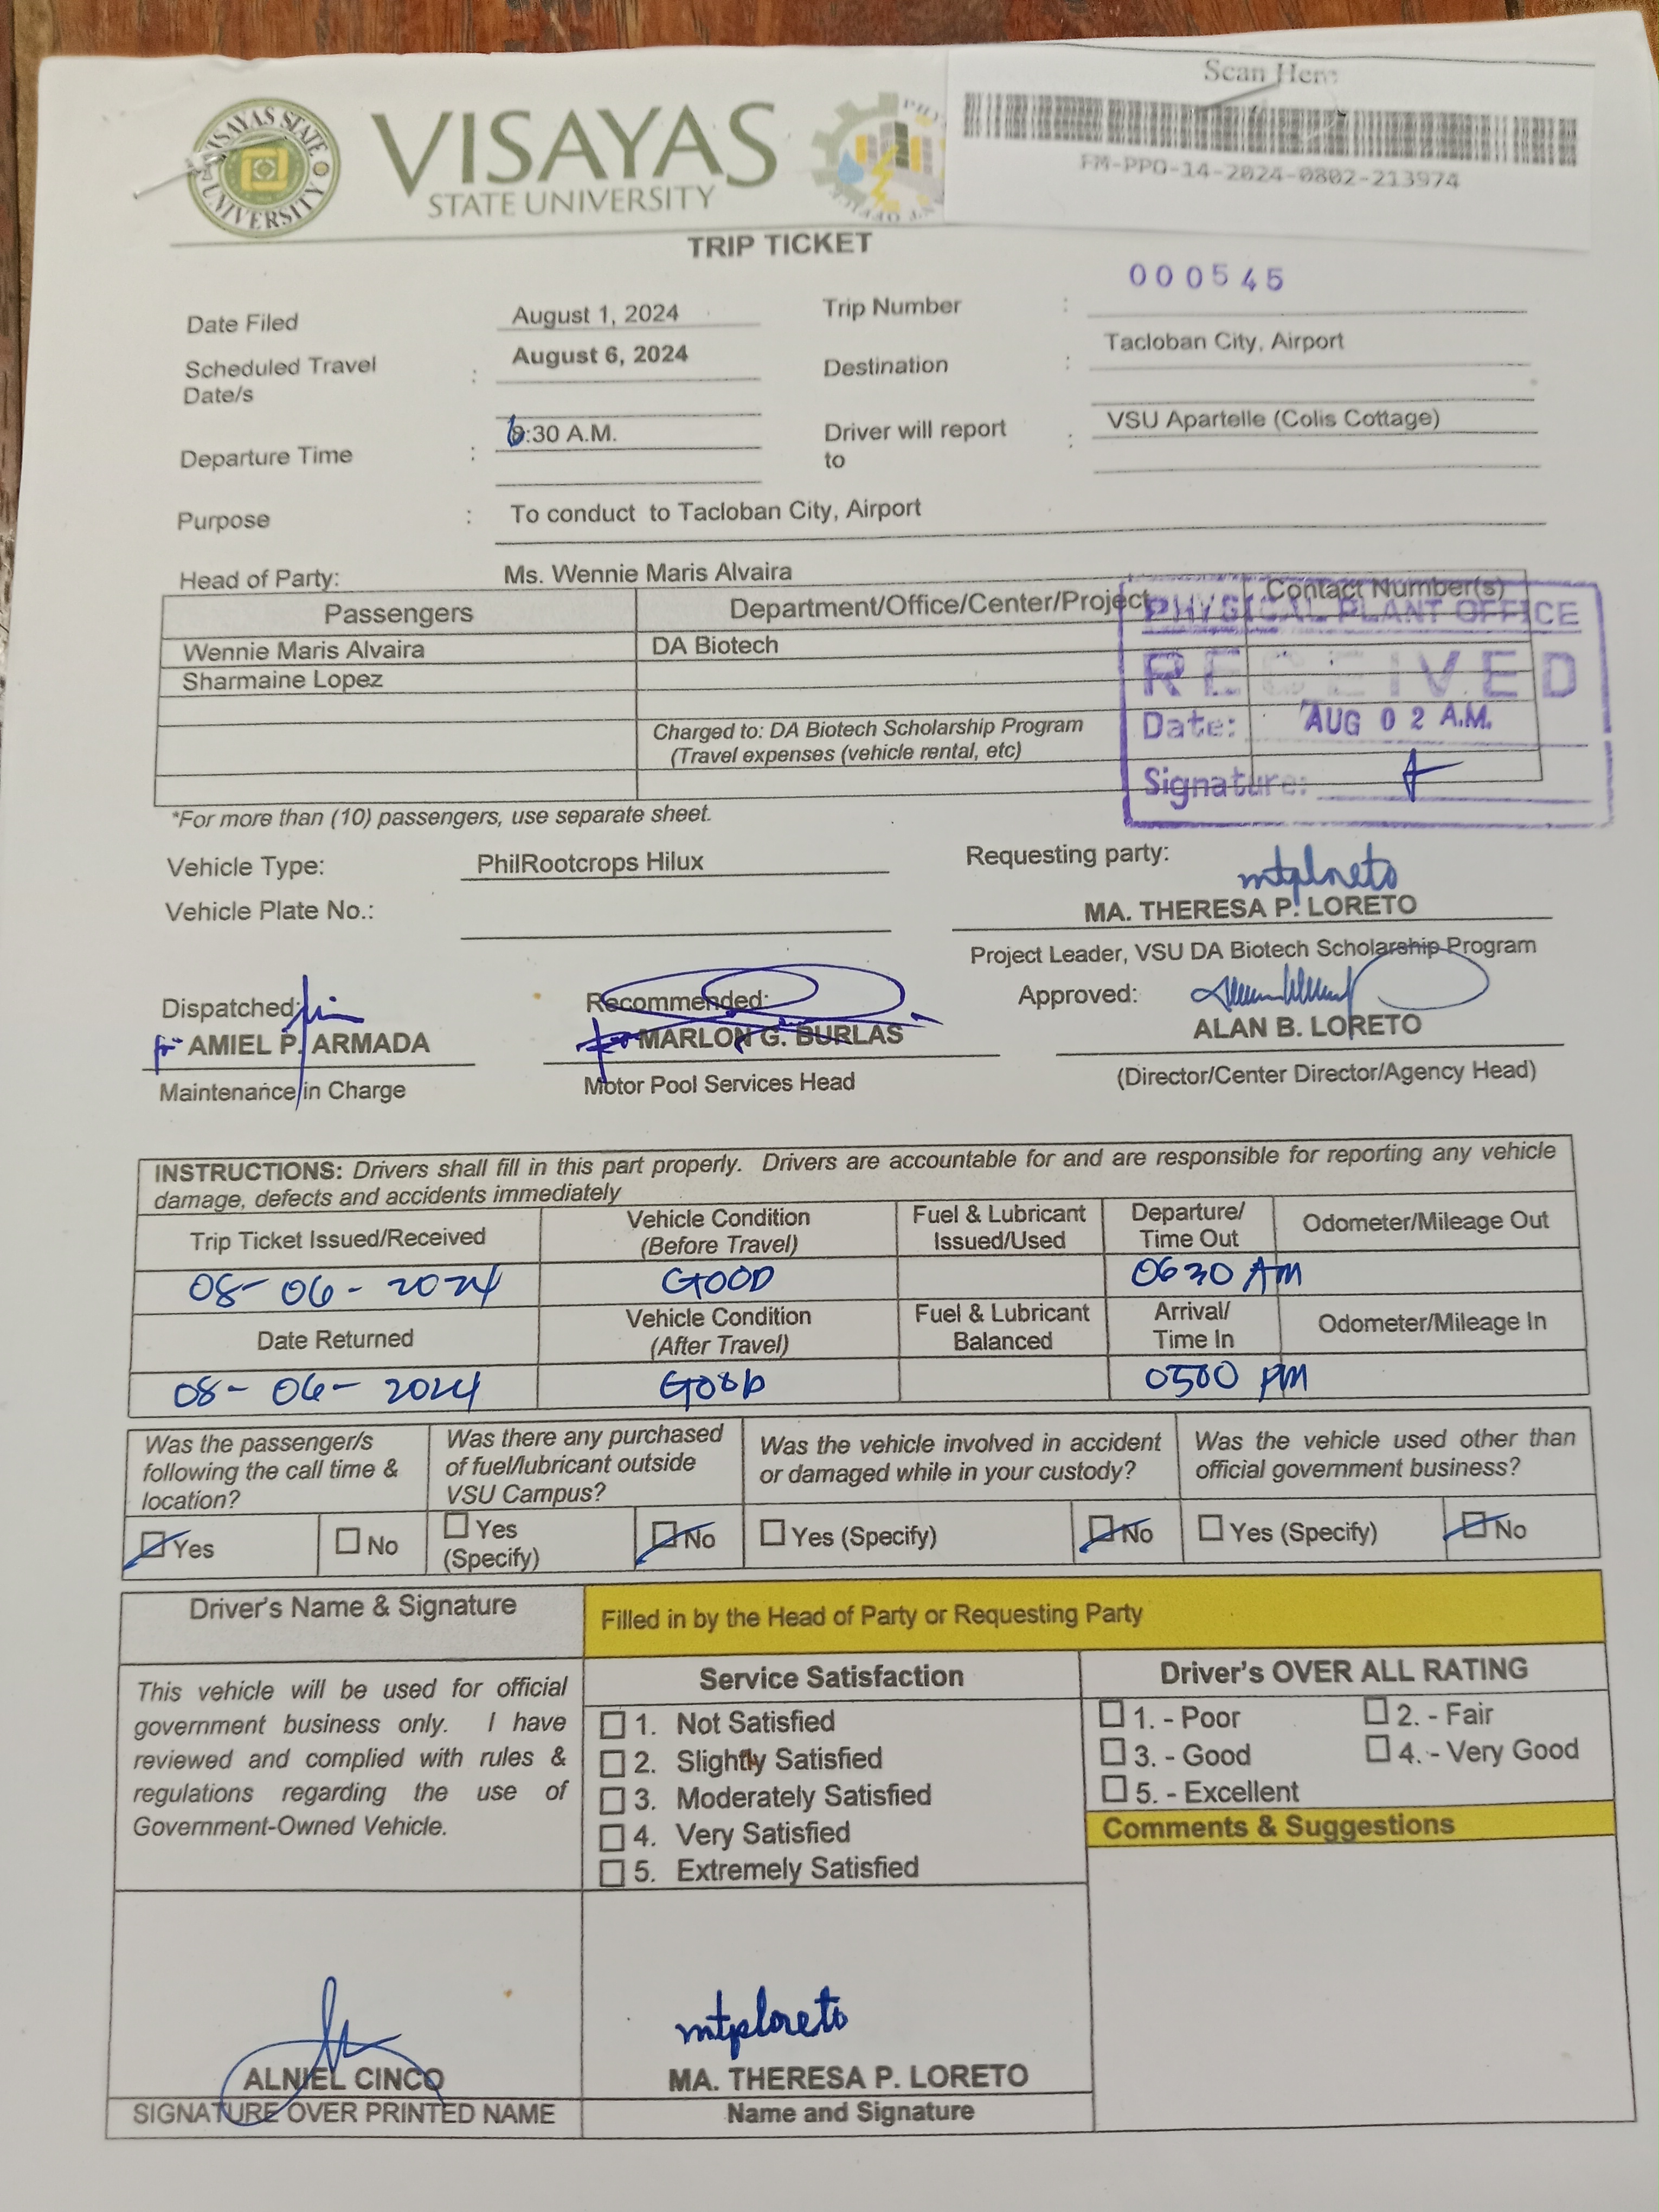 Scan Here
FM-PPO-14-2024-0802-213974
VISAYAS STATE UNIVERSITY
VISAYAS
STATE UNIVERSITY
TRIP TICKET
000545
Date Filed August 1, 2024 Trip Number :
Scheduled Travel Date/s : August 6, 2024 Destination : Tacloban City, Airport
Departure Time : 6:30 A.M. Driver will report to : VSU Apartelle (Colis Cottage)
Purpose : To conduct to Tacloban City, Airport
Head of Party: Ms. Wennie Maris Alvaira
Passengers Department/Office/Center/Project Contact Number(s)
Wennie Maris Alvaira DA Biotech
Sharmaine Lopez
Charged to: DA Biotech Scholarship Program
(Travel expenses (vehicle rental, etc)
PHYSICAL PLANT OFFICE
RECEIVED
Date: AUG 02 A.M.
Signature:
*For more than (10) passengers, use separate sheet.
Vehicle Type: PhilRootcrops Hilux Requesting party:
mtploreto
Vehicle Plate No.: MA. THERESA P. LORETO
Project Leader, VSU DA Biotech Scholarship Program
Dispatched: Recommended: Approved:
for AMIEL P. ARMADA for MARLON G. BURLAS ALAN B. LORETO
Maintenance in Charge Motor Pool Services Head (Director/Center Director/Agency Head)
INSTRUCTIONS: Drivers shall fill in this part properly. Drivers are accountable for and are responsible for reporting any vehicle
damage, defects and accidents immediately
Trip Ticket Issued/Received Vehicle Condition (Before Travel) Fuel & Lubricant Issued/Used Departure/ Time Out Odometer/Mileage Out
08-06-2024 GOOD 0630 AM
Date Returned Vehicle Condition (After Travel) Fuel & Lubricant Balanced Arrival/ Time In Odometer/Mileage In
08-06-2024 GOOD 0500 PM
Was the passenger/s following the call time & location? Was there any purchased of fuel/lubricant outside VSU Campus? Was the vehicle involved in accident or damaged while in your custody? Was the vehicle used other than official government business?
Yes No Yes (Specify) No Yes (Specify) No Yes (Specify) No
Driver's Name & Signature Filled in by the Head of Party or Requesting Party
This vehicle will be used for official
government business only. I have
reviewed and complied with rules &
regulations regarding the use of
Government-Owned Vehicle.
Service Satisfaction
1. Not Satisfied
2. Slightly Satisfied
3. Moderately Satisfied
4. Very Satisfied
5. Extremely Satisfied
Driver's OVER ALL RATING
1. - Poor 2. - Fair
3. - Good 4. - Very Good
5. - Excellent
Comments & Suggestions
mtploreto
ALNIEL CINCO MA. THERESA P. LORETO
SIGNATURE OVER PRINTED NAME Name and Signature